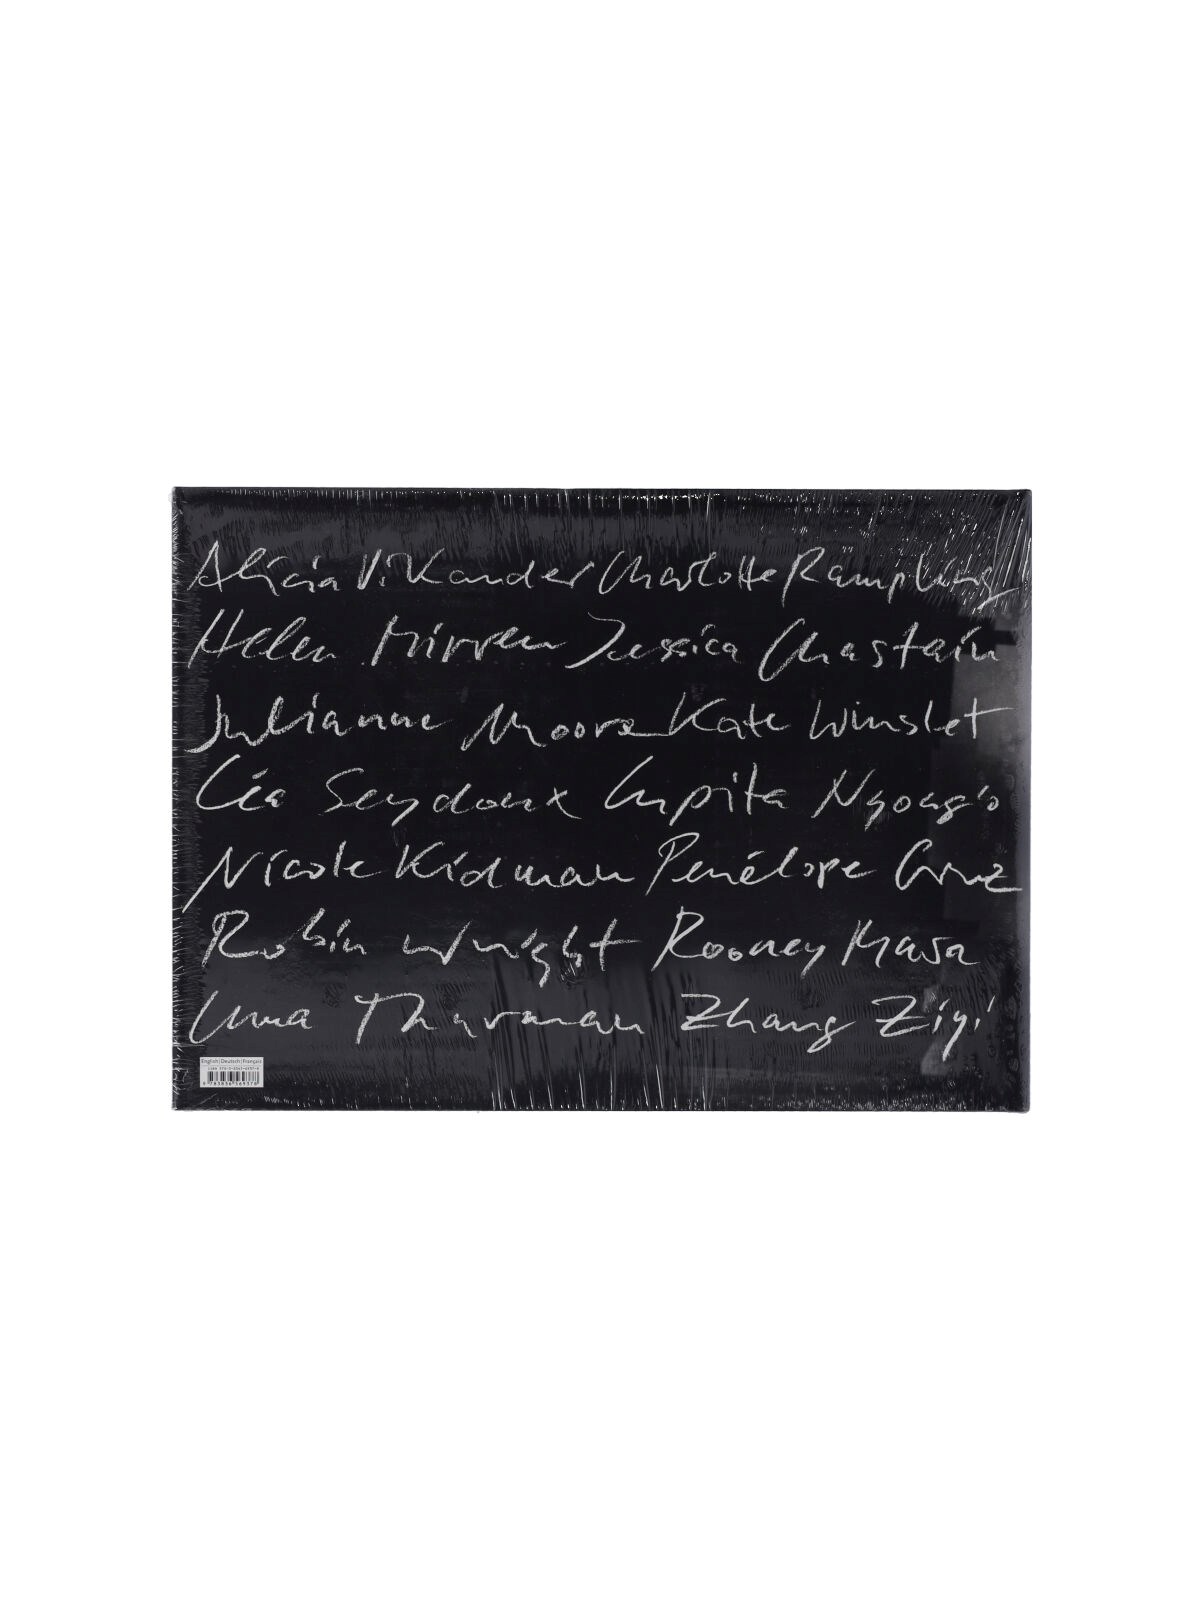 Alicia Vikander Charlotte Rampling
Helen Mirren Jessica Chastain
Julianne Moore Kate Winslet
Léa Seydoux Lupita Nyong'o
Nicole Kidman Penélope Cruz
Robin Wright Rooney Mara
Uma Thurman Zhang Ziyi
English | Deutsch | Français
ISBN 978-3-8365-6937-8
9 783836 569378